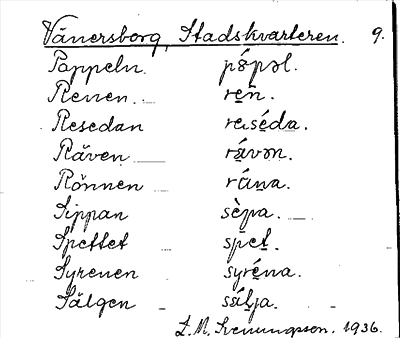 Vänersborg, Stadskvarteren. 9.
Poppeln. pɔ́pəl.
Renen. re̱ñ.
Resedan reséda.
Räven rávən.
Rönnen
Sippan sèpa.
Spettet spet.
Syrenen syréna.
Sälgen sálja.
L. M. Svenungsson. 1936.